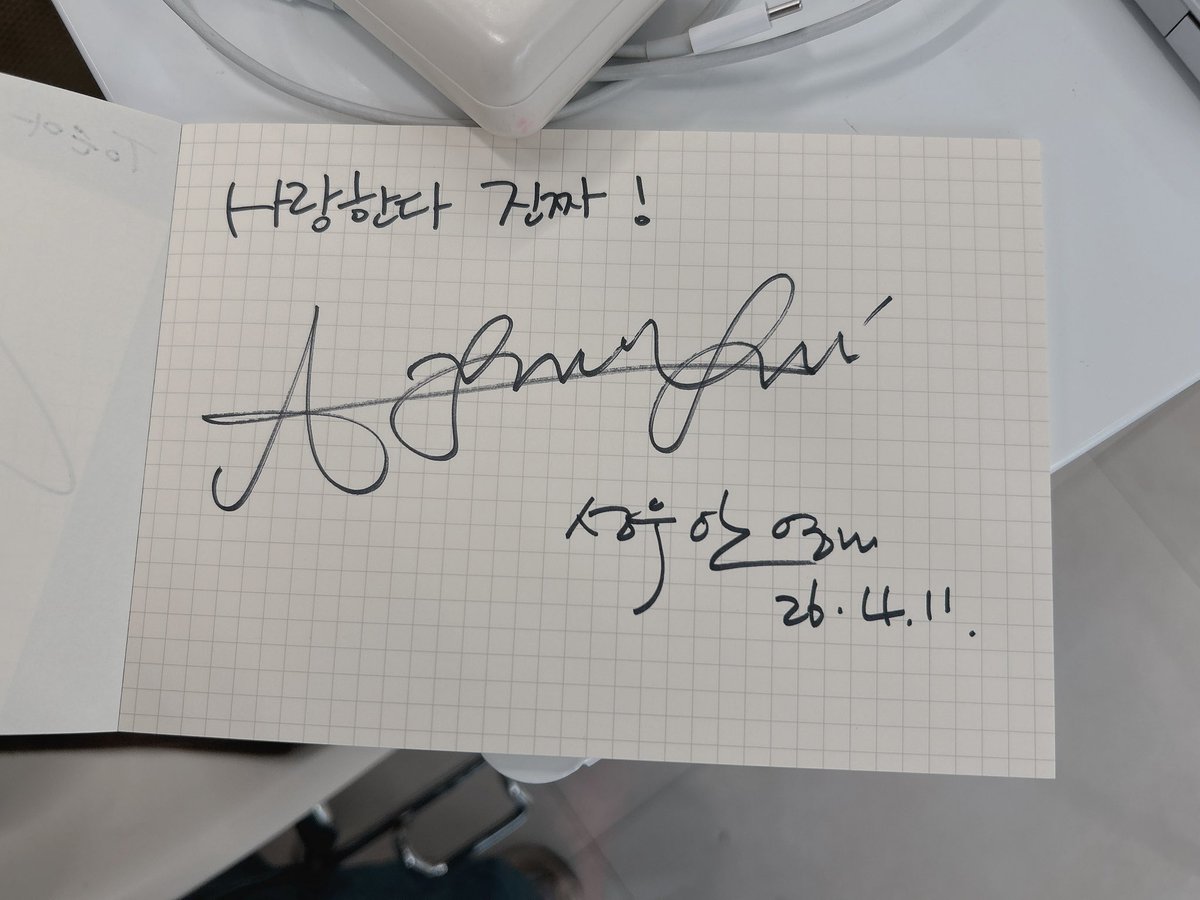 사랑한다 진짜!
성우 안영미
26.4.11.